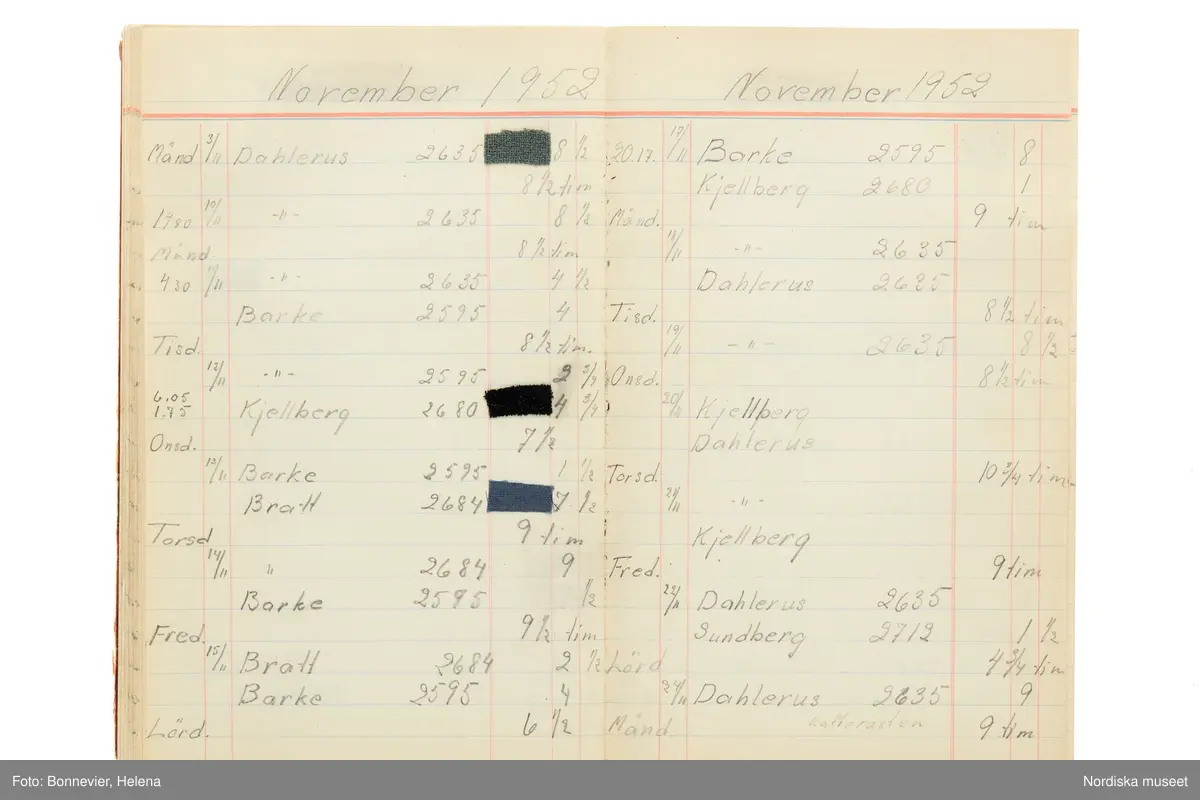 November 1952
Månd 3/11 Dahlerus 2635 8 1/2
8 1/2 tim
10/11 -"- 2635 8 1/2
Månd 8 1/2 tim
430 11/11 -"- 2635 4 1/2
Barke 2595 4
Tisd. 8 1/2 tim.
12/11 -"- 2595 2 3/4
6.05
1.75 Kjellberg 2680 4 3/4
Onsd. 7 1/2
13/11 Barke 2595 1 1/2
Bratt 2684 7 1/2
Torsd 9 tim
14/11 " 2684 9
Barke 2595 1/2
Fred. 9 1/2 tim
15/11 Bratt 2684 2 1/2
Barke 2595 4
Lörd. 6 1/2
November 1952
20.17. 17/11 Barke 2595 8
Kjellberg 2680 1
Månd. 9 tim
18/11 -"- 2635
Dahlerus 2635
Tisd. 8 1/2 tim
19/11 -"- 2635 8 1/2
Onsd. 8 1/2 tim
20/11 Kjellberg
Dahlerus
Torsd. 10 3/4 tim
21/11 -"-
Kjellberg
Fred. 9 tim
22/11 Dahlerus 2635
Sundberg 2712 1 1/2
Lörd 4 3/4 tim
24/11 Dahlerus 2635 9
Månd 9 tim
Foto: Bonnevier, Helena
Nordiska museet